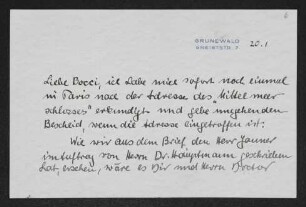 GRUNEWALD
20.1
Liebe Docci, ich habe mich sofort noch einmal
in Paris nach der Adresse des "Mittelmeer
schlosses" erkundigt und gebe umgehenden
Bescheid, wenn die Adresse eingetroffen ist.
Wie wir aus dem Brief, den Herr Jauner
im Auftrag von Herrn Dr. Hauptmann geschrieben
hat, ersehen, wäre es Dir und Herrn Doctor